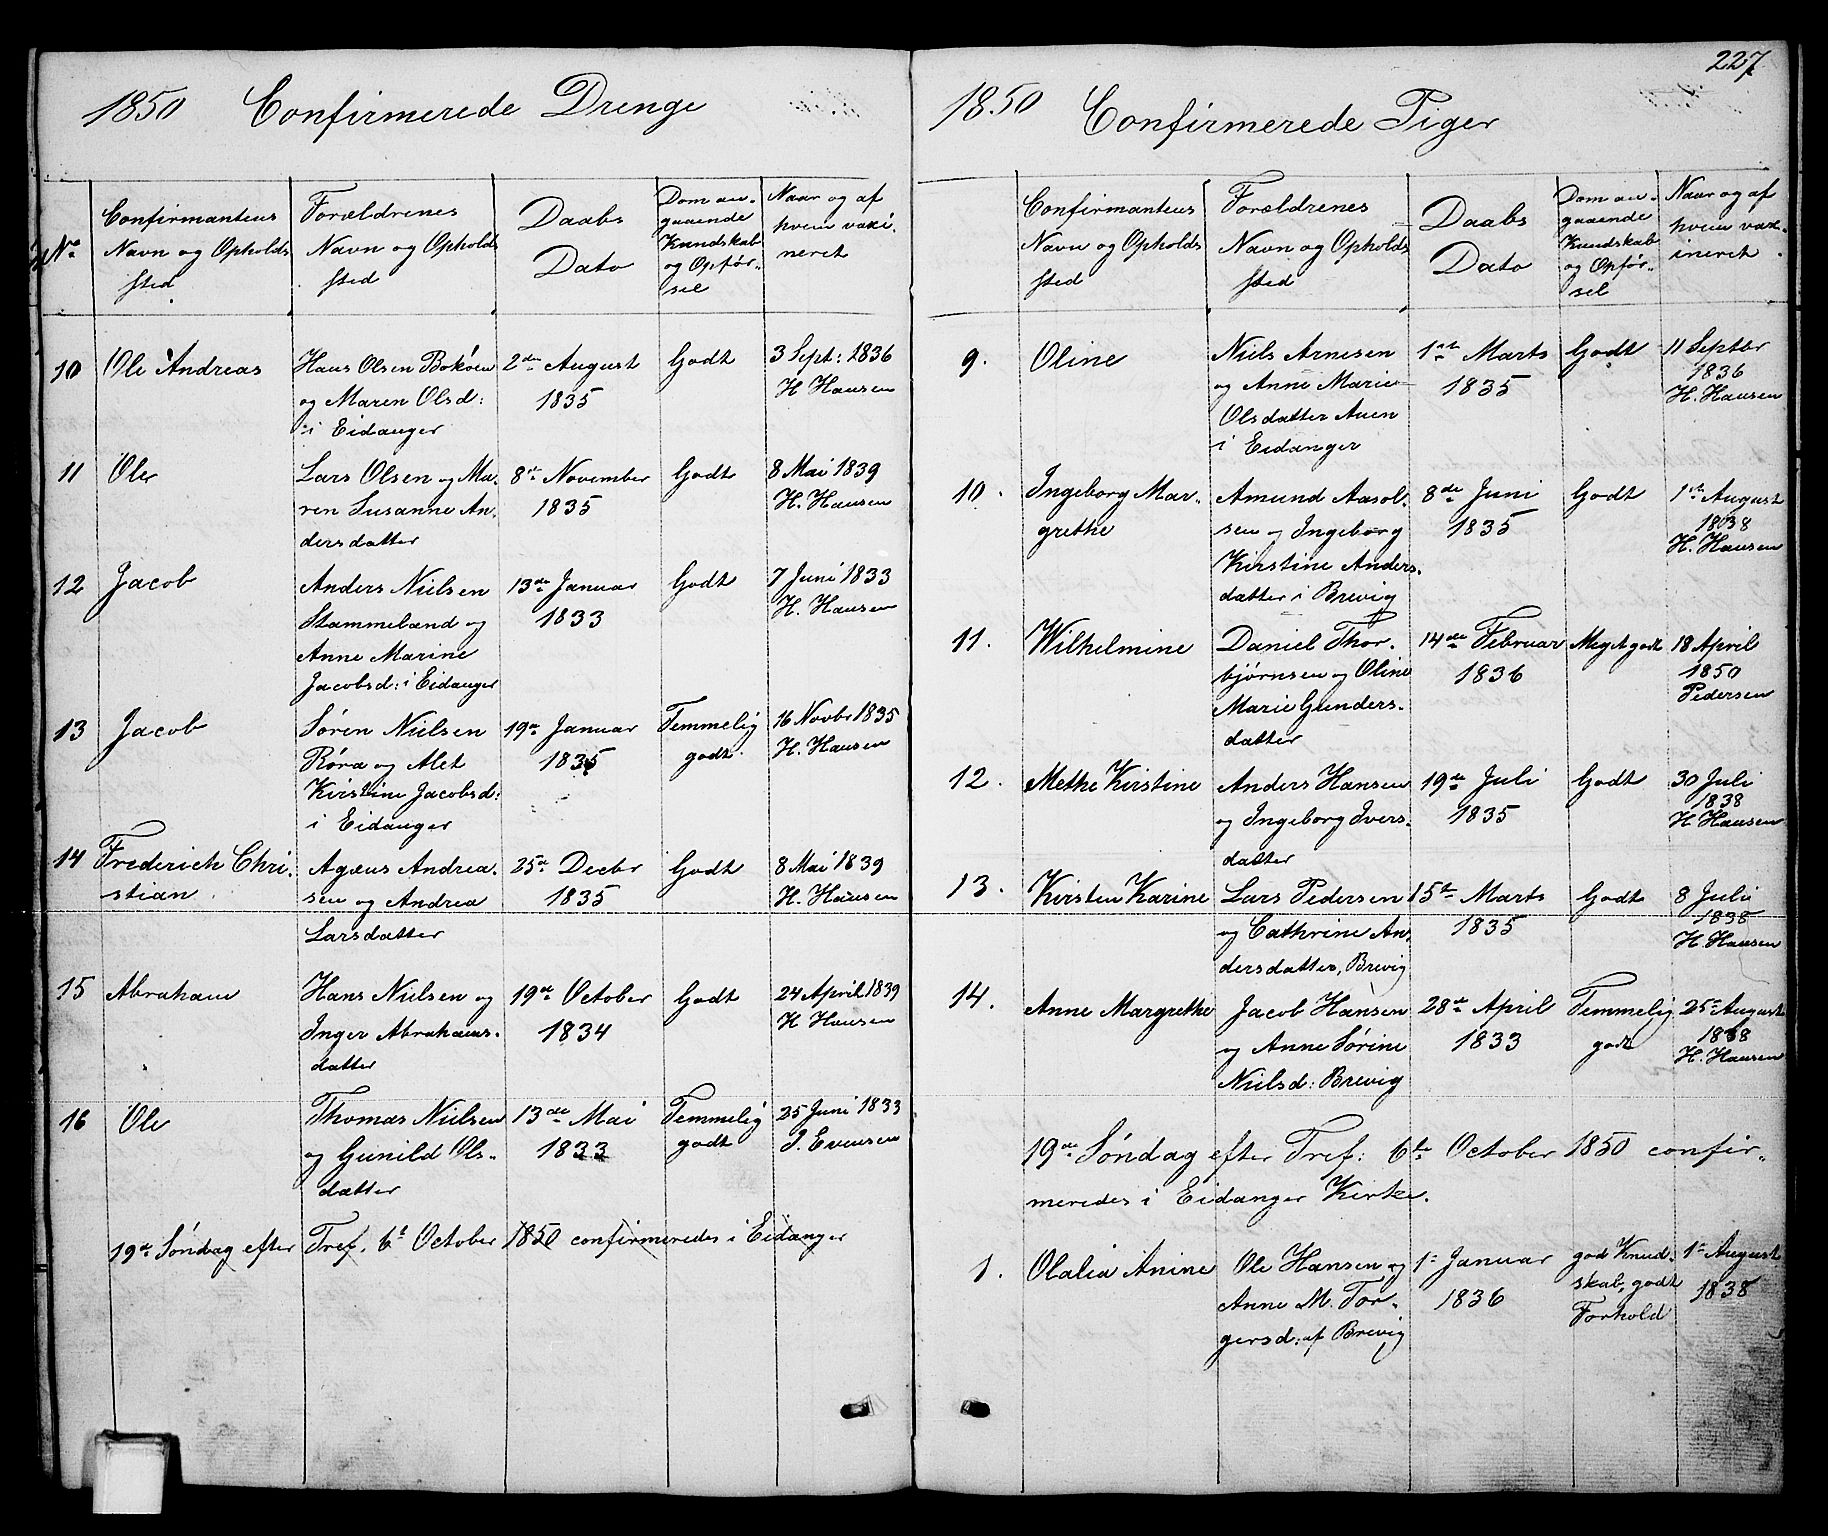 1850 Confirmerede Drenge
No
Confirmantens
Navn og Opholds
sted
Forældrenes
Navn og Opholds
sted
Daabs
Dato
Dom an-
gaaende
Kundskab
og Opfør-
sel
Naar og af
hvem vaxi-
neret
10
Ole Andreas
Hans Olsen Bokøen
og Maren Olsd:
i Eidanger
2den August
1835
Godt
3 Sept: 1836
H Hansen
11
Ole
Lars Olsen og Ma-
ren Susanne An-
dersdatter
8de November
1835
Godt
8 Mai 1839
H. Hansen
12
Jacob
Anders Nielsen
Stammeland og
Anne Marine
Jacobsd: i Eidanger
13de Januar
1833
Godt
7 Juni 1833
H. Hansen
13
Jacob
Søren Nielsen
Røra og Alet
Kirstine Jacobsd:
i Eidanger
19de Januar
1835
Temmelig
godt
16 Novbr 1835
H. Hansen
14
Frederich Chri-
stian
Agæus Andrea-
sen og Andrea
Larsdatter
25de Decbr
1835
Godt
8 Mai 1839
H. Hansen
15
Abraham
Hans Nielsen og
Inger Abrahams-
datter
19de October
1834
Godt
24 April 1839
H Hansen
16
Ole
Thomas Nielsen
og Gunild Ols-
datter
13de Mai
1833
Temmelig
godt
25 Juni 1833
J. Evensen
19de Søndag efter Tref. 6t October 1850 confirmeredes i Eidanger
227
1850 Confirmerede Piger
Confirmantens
Navn og Opholds
sted
Forældrenes
Navn og Opholds
sted
Daabs
Dato
Dom an-
gaaende
Kundskab
og Opfør-
sel
Naar og af
hvem vax-
ineret
9.
Oline
Niels Arnesen
og Anne Marie
Olsdatter Auen
i Eidanger
1st Marts
1835
Godt
11 Septbr
1836
H. Hansen
10.
Ingeborg Mar-
grethe
Amund Aasol-
sen og Ingeborg
Kirstine Anders-
datter i Brevig
8de Juni
1835
Godt
1st August
1838
H. Hansen
11.
Wilhelmine
Daniel Thor-
bjørnsen og Oline
Marie Gunders-
datter
14de Februar
1836
Meget godt
18 April
1850
Pedersen
12.
Methe Kirstine
Anders Hansen
og Ingeborg Ivers-
datter
19de Juli
1835
Godt
30 Juli
1838
H Hansen
13.
Kirsten Karine
Lars Pedersen
og Cathrine An-
dersdatter, Brevig
15de Marts
1835
Godt
8 Julii
1838
H. Hansen
14.
Anne Margrethe
Jacob Hansen
og Anne Sørine
Nielsd: Brevig
28de April
1833
Temmelig
godt
25 August
1838
H. Hansen
19de Søndag efter Tref: 6te October 1850 confir-
meredes i Eidanger Kirke.
1.
Olalia Anine
Ole Hansen og
Anne M. Tor-
gersd: af Brevig
1 Januar
1836
god Knud-
skab, godt
Forhold
1 August
1838